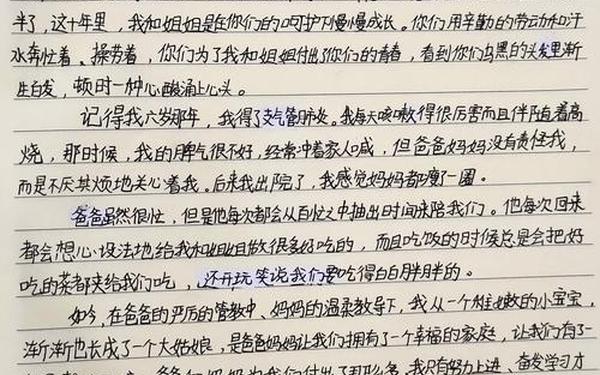 半了，这十年里，我和姐姐是在你们的呵护下慢慢成长。你们用辛勤的劳动和汗
水奔忙着、操劳着，你们为了我和姐姐付出了你们的青春，看到你们乌黑的头发里渐
生白发，顿时一种心酸涌上心头。
记得我六岁那年，我得了支气管肺炎。我每天咳嗽得很厉害而且伴随着高
烧，那时候，我的脾气很不好，经常冲着家人喊，但爸爸妈妈没有责怪我，
而是不厌其烦地关心着我。后来我出院了，我感觉妈妈都瘦了一圈。
爸爸虽然很忙，但是他每次都会从百忙之中抽出时间来陪我们。他每次回来
都会想心设法地给我和姐姐做很多好吃的，而且吃饭的时候总是会把好
吃的菜都夹给我们吃，还开玩笑说我们要吃得白白胖胖的。
如今，在爸爸的严厉的管教中、妈妈的温柔教导下，我从一个稚嫩的小宝宝，
渐渐地长成了一个大姑娘，是爸爸妈妈让我们拥有了一个幸福的家庭，让我们有了一
爸爸妈妈为我们付出了那么多，我只有努力上进、奋发学习才